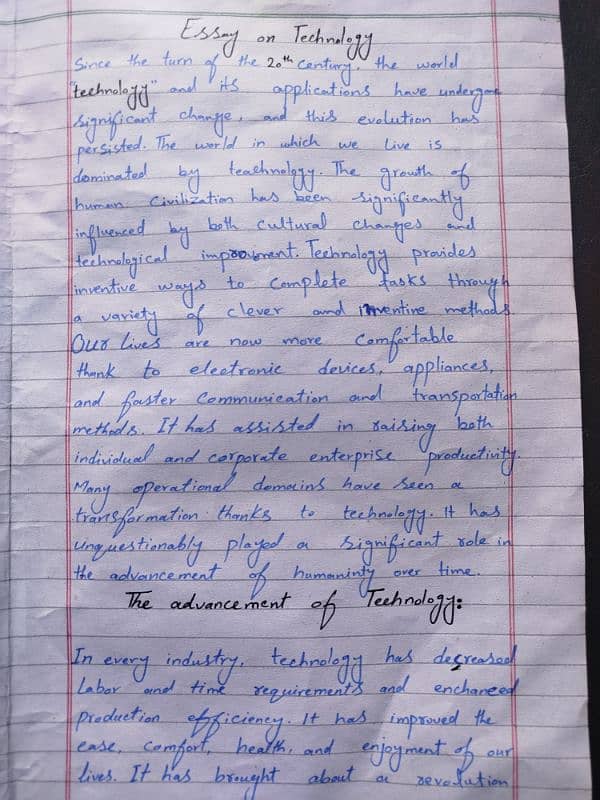 Essay on Technology
Since the turn of the 20th Century, the world
"technology" and its applications have undergone
significant change, and this evolution has
persisted. The world in which we live is
dominated by teachnology. The growth of
human Civilization has been significantly
influenced by both cultural changes and
technological improvment. Technology provides
inventive ways to complete tasks through
a variety of clever and inventive methods.
Our lives are now more comfortable
thank to electronic devices, appliances,
and faster communication and transportation
methods. It has assisted in raising both
individual and corporate enterprise productivity.
Many operational domains have seen a
transformation thanks to technology. It has
unquestionably played a significant role in
the advancement of humaninty over time.
The advancement of Technology:
In every industry, technology has decreased
Labor and time requirements and enchanced
production efficiency. It has improved the
ease, comfort, health, and enjoyment of our
lives. It has brought about a revolution